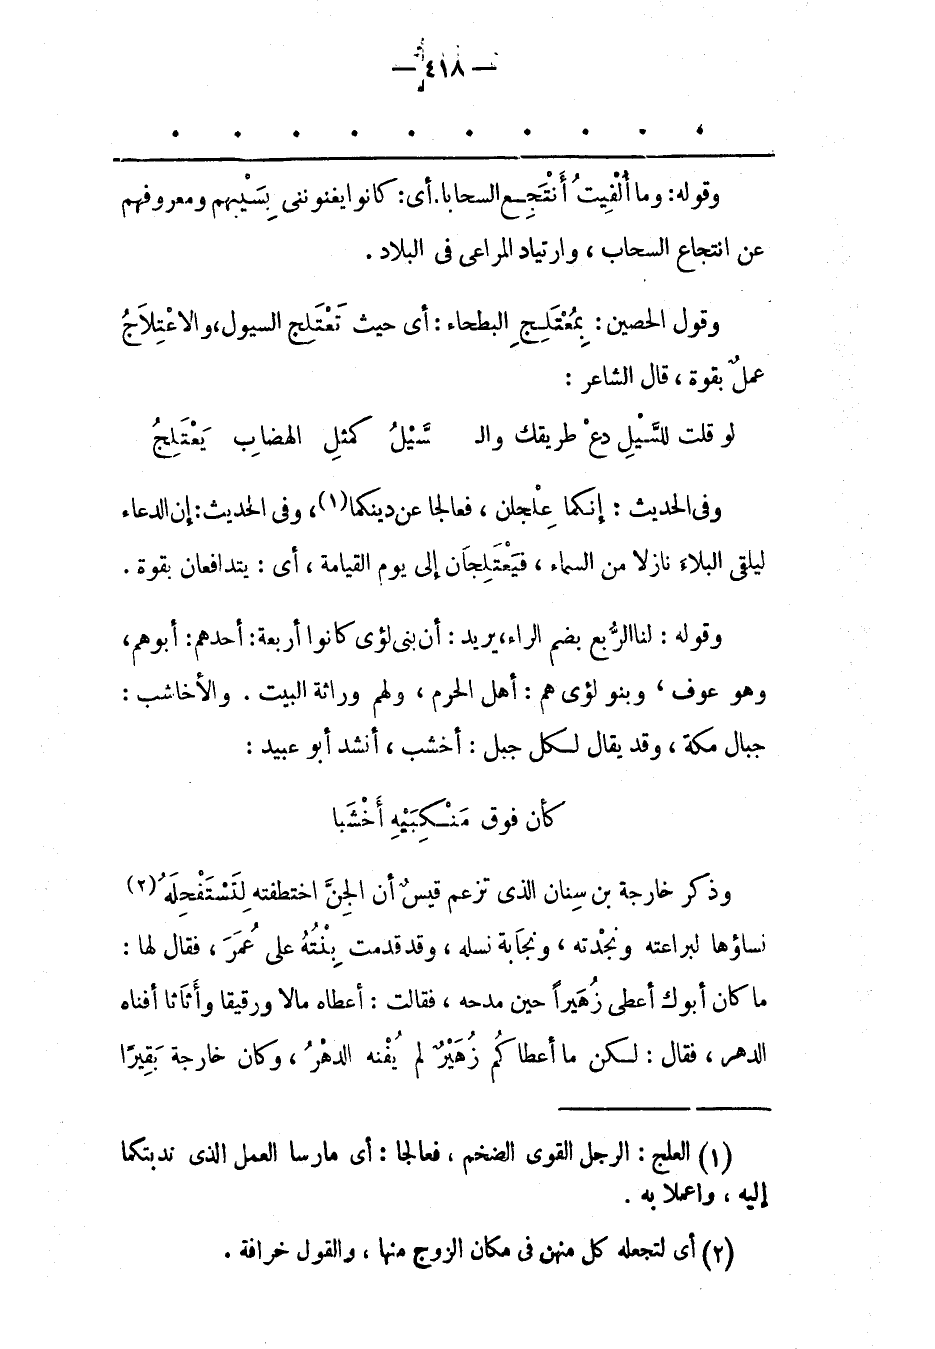 — ٤١٨ —
. . . . . . . . . .
وقوله: وما أُلْفِيتُ أَنْتَجِـع السحابا. أى: كانوا يغنوننى بِسَيْبهم ومعروفهم
عن انتجاع السحاب ، وارتياد المراعى فى البلاد .
وقول الحصين : بِمُعْتَلِـجِ البطحاء : أى حيث تَعْتَلِج السيول، والاعْتِلاَجُ
عملٌ بقوة ، قال الشاعر :
لو قلت للسَّيْلِ دعْ طريقك والـ سَّيْلُ كمثلِ الهضابِ يَعْتَلِجُ
وفى الحديث : إنكما عِلْجلن ، فعالجا عن دينكما(١)، وفى الحديث: إن الدعاء
ليلقى البلاءَ نازلا من السماء ، فيَعْتَلِجَان إلى يوم القيامة ، أى : يتدافعان بقوة .
وقوله : لنا الرُّبع بضم الراء، يريد : أن بنى لؤى كانوا أربعة : أحدهم : أبوهم،
وهو عوف ، وبنو لؤى هم : أهل الحرم ، ولهم وراثة البيت . والأخاشب :
جبال مكة ، وقد يقال لـكل جبل : أخشب ، أنشد أبو عبيد :
كأن فوق مَنْـكِبَيْهِ أَخْشَبا
وذكر خارجة بن سِنان الذى تزعم قيسٌ أن الجِنَّ اختطفته لِتَسْتَفْحِلَهُ(٢)
نساؤها لبراعته ونجْدته ، ونجَابة نسله ، وقد قدمت بِنْتُهُ على عُمَرَ ، فقال لها :
ما كان أبوك أعطى زُهَيراً حين مدحه ، فقالت : أعطاه مالا ورقيقا وأَثَاثا أفناه
الدهر ، فقال : لـكن ما أعطاكُم زُهَيْرٌ لم يُفْنه الدهْرُ ، وكان خارجة بَقِيرًا
(١) العلج : الرجل القوى الضخم ، فعالجا : أى مارسا العمل الذى ندبتكما
إليه ، واعملا به .
(٢) أى لتجعله كل منهن فى مكان الزوج منها ، والقول خرافة .